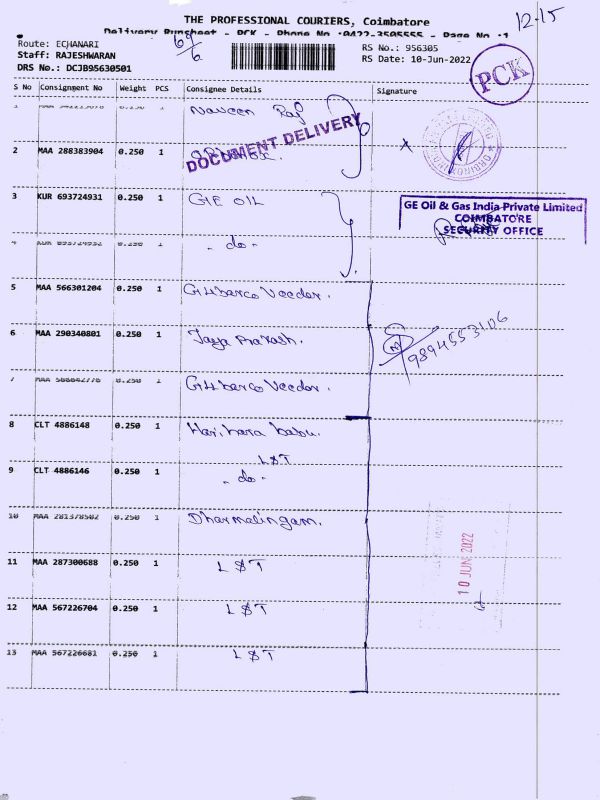 12-15
THE PROFESSIONAL COURIERS, Coimbatore
Delivery Runsheet - PCK - Phone No :0422-3505555 - Page No :1
Route: ECHANARI
Staff: RAJESHWARAN
DRS No.: DCJB95630501
69/6
RS No.: 956305
RS Date: 10-Jun-2022
PCK
S No Consignment No Weight PCS Consignee Details Signature
Naveen Raj
2 MAA 288383904 0.250 1
DOCUMENT DELIVERY
3 KUR 693724931 0.250 1 GE OIL
GE Oil & Gas India Private Limited
COIMBATORE
SECURITY OFFICE
4 KUR 693724932 0.250 1 - do -
5 MAA 566301204 0.250 1 Gilbarco Veeder.
6 MAA 290340801 0.250 1 Jaya Prakash.
9894553106
7 0.250 1 Gilbarco Veeder.
8 CLT 4886148 0.250 1 Hari hara babu.
L&T
9 CLT 4886146 0.250 1 - do -
10 MAA 281378502 0.250 1 Dharmalingam.
11 MAA 287300688 0.250 1 L&T
10 JUN 2022
12 MAA 567226704 0.250 1 L&T
13 MAA 567226681 0.250 1 L&T